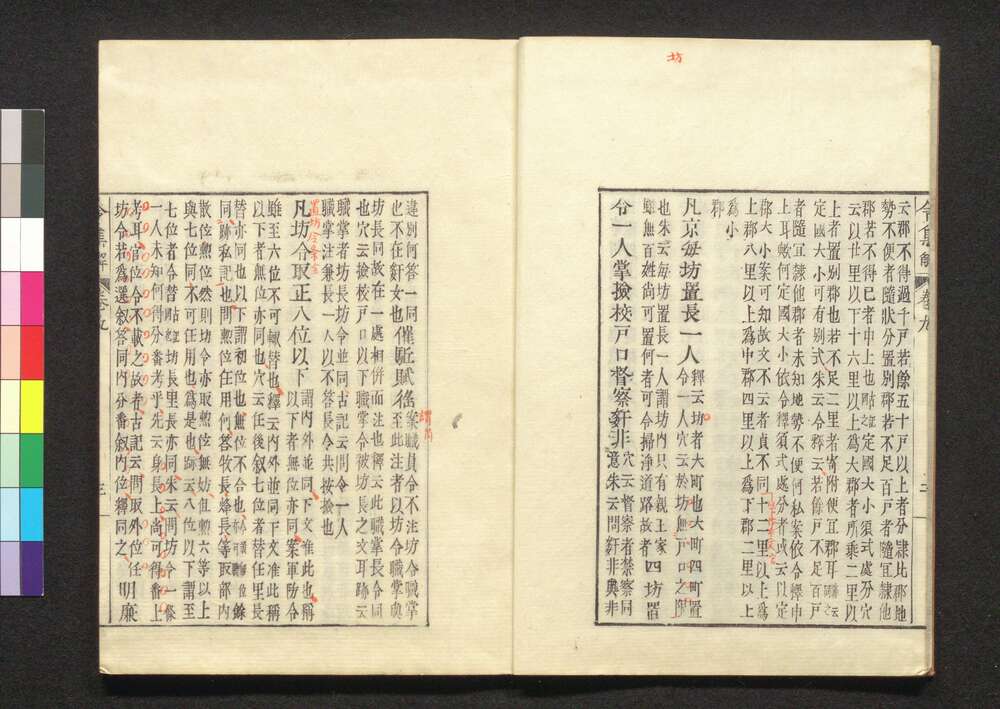 坊
令集解 卷九 三
云郡不得過千戸若餘五十戸以上者分隷比郡地
勢不便者隨狀分置別郡若不足百戸者隨宜隷他
郡若不得已者申上也定國大小須式處分穴
云以廿里以下十六里以上爲大郡者所乘二里以
上者置別郡也若不足二里者寄附便宜郡耳云
定國大小可有別式朱云令釋云若餘戸不足百戸
者隨宜隷他郡者未知地勢不便何私案依令釋申
上耳歟何定國大小依令釋須式處分者或云以定
郡大小案可知故文不云者貞不同十二里以上爲
上郡八里以上爲中郡四里以上爲下郡二里以上
爲小
郡
凡京每坊置長一人
釋云坊者大町也大町四町置
令一人穴云於坊無戸口之
也朱云每坊置長一人謂坊內只有親王家
雖無百姓尚可置何者可令掃淨道路故者
四坊置
令一人掌撿校戸口督察姧非
穴云督察者禁察同
意朱云問姧非奥非
違別何答一同
也不在姧女也
催駈賦徭
案職員令不注坊令職掌
至此注者以坊令職掌與
坊長同故在一處相併而注也釋云此職掌長令同
也穴云撿校戸口以下職掌令被坊長之文耳跡云
職掌者坊長坊令並同古記云問令一人
職掌注兼長一人以不答長令共按撿也
謂
置坊令條
凡坊令取正八位以下
謂內外並同下文准此也稱
以下者無位亦同案軍防令
雖至六位不可輙替也釋云內外並同下文准此稱
以下者無位亦同也穴云任後叙七位者替任里長
替亦同也以下謂初位也無位不合也餘
同跡私記也問勲位任用何答牧長烽長等取部內
散位勲位然則坊令亦取勲位無妨但勲六等以上
與七位同不可任用也爲是也跡云八位以下謂至
七位者令替坊長里長亦同朱云問坊令一條
一人未知何得分番考乎先云身長上尚可得番上
考耳官位令不載之故者古記云問取外位任
坊令若爲選叙答同內分番叙內位釋同之
明廉
令集解 卷九 三